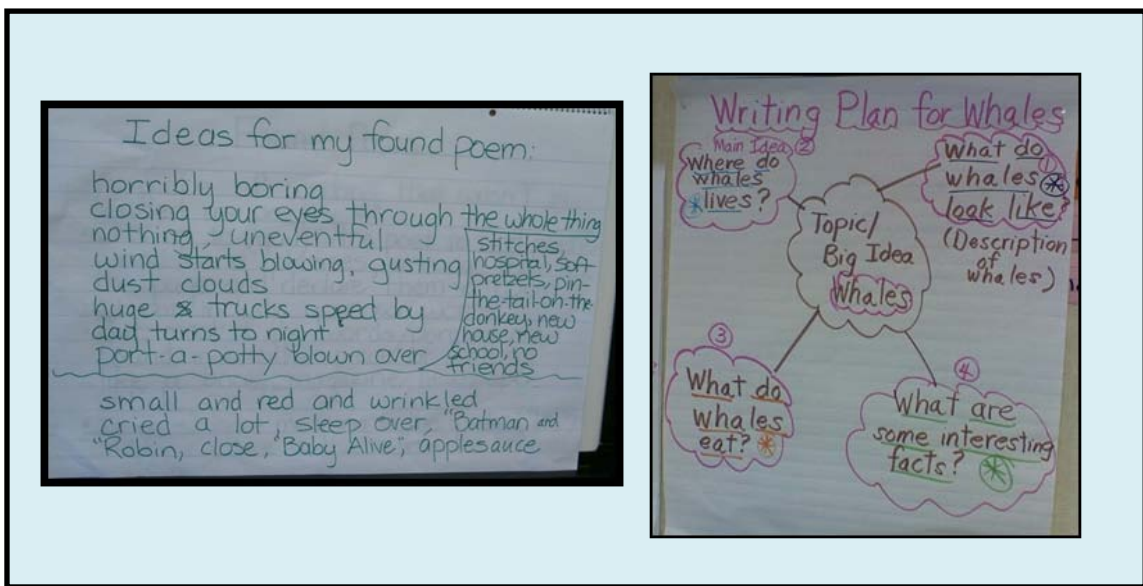 Ideas for my found poem:
horribly boring
closing your eyes through the whole thing
nothing, uneventful
wind starts blowing, gusting
dust clouds
huge & trucks speed by
dad turns to night
port-a-potty blown over
stitches,
hospital, soft
pretzels, pin-
the-tail-on-the-
donkey, new
house, new
school, no
friends
small and red and wrinkled
cried a lot, sleep over, "Batman and
"Robin, close, "Baby Alive", applesauce
Writing Plan for Whales
Main Idea ②
Where do
whales
lives?
①
What do
whales
look like?
(Description
of
whales)
Topic/
Big Idea
Whales
③
What do
whales
eat?
④
What are
some interesting
facts?